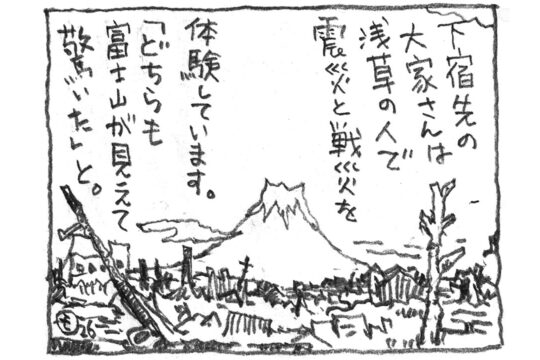 下宿先の
大家さんは
浅草の人で
震災と戦災を
体験しています。
「どちらも
富士山が見えて
驚いた」と。
26